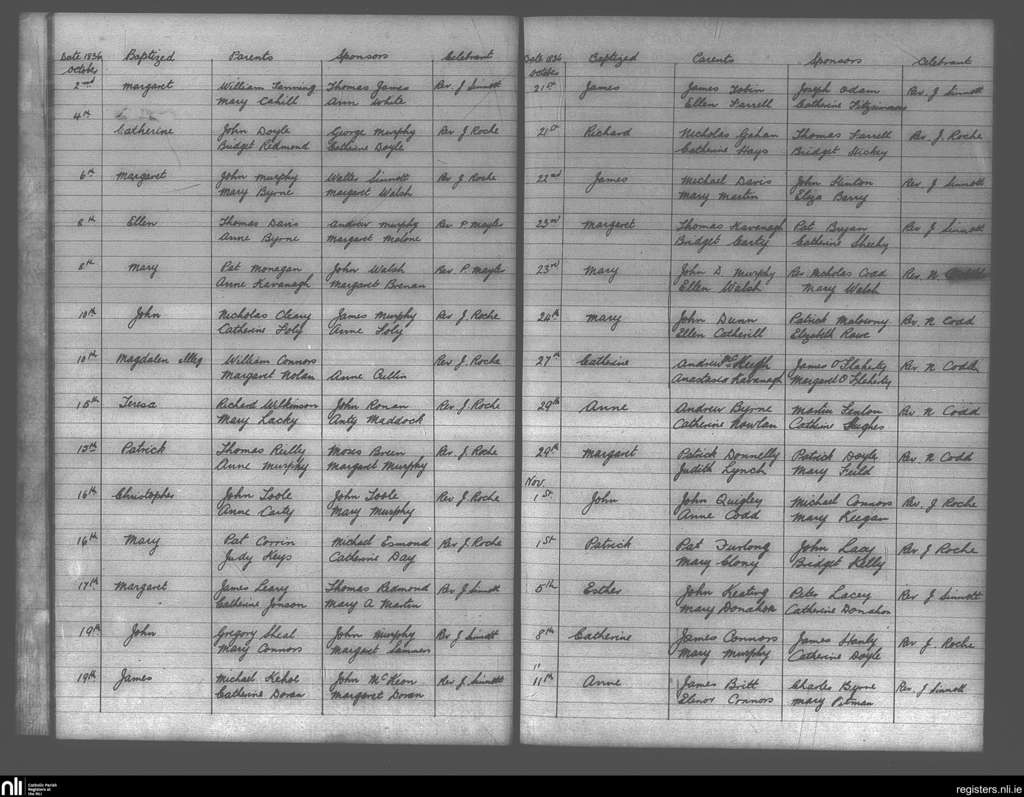 Date 1836 Baptized Parents Sponsors Celebrant
October
2nd Margaret William Fanning Thomas James Rev. J Sinnott
Mary Cahill Ann White
4th
Catherine John Doyle George Murphy Rev J. Roche
Bridget Redmond Catherine Doyle
6th Margaret John Murphy Walter Sinnott Rev J Roche
Mary Byrne Margaret Walsh
8th Ellen Thomas Davis Andrew Murphy Rev P. Mayler
Anne Byrne Margaret Malone
8th Mary Pat Monagan John Walsh Rev P. Mayler
Anne Kavanagh Margaret Brenan
10th John Nicholas Cleary James Murphy Rev J. Roche
Catherine Foly Anne Foly
10th Magdalen Illeg William Connors Rev J. Roche
Margaret Nolan Anne Cullin
15th Teresa Richard Wilkinson John Ronan Rev. J. Roche
Mary Lacky Anty Maddock
13th Patrick Thomas Reilly Moses Breen Rev. J. Roche
Anne Murphy Margaret Murphy
16th Christopher John Toole John Toole Rev J. Roche
Anne Carty Mary Murphy
16th Mary Pat Corrin Michael Esmond Rev J. Roche
Judy Keys Catherine Day
17th Margaret James Leary Thomas Redmond Rev J. Sinnott
Catherine Jonson Mary A Martin
19th John Gregory Sheal John Murphy Rev J Sinnott
Mary Connors Margaret Summers
19th James Michael Kehoe John McKeon Rev. J. Sinnott
Catherine Doran Margaret Doran
Date 1836 Baptized Parents Sponsors Celebrant
October
21st James James Tobin Joseph Adam Rev. J Sinnott
Ellen Farrell Catherine Fitzsimons
21st Richard Nicholas Gahan Thomas Farrell Rev. J. Roche
Catherine Hays Bridget Hickey
22nd James Michael Davis John Hinton Rev. J Sinnott
Mary Martin Eliza Barry
23rd Margaret Thomas Kavanagh Pat Bryan Rev J Sinnott
Bridget Carty Catherine Sheehy
23rd Mary John D Murphy Rev Nicholas Codd Rev. N.
Ellen Walsh Mary Walsh
24th Mary John Dunn Patrick Malowny Rev. N Codd
Ellen Cotherill Elizabeth Rowe
27th Catherine Andrew McKeugh James O'Flaherty Rev. N Codd
Anastasia Kavanagh Margaret O'Flaherty
29th Anne Andrew Byrne Martin Fenlon Rev N Codd
Catherine Nowlan Catherine Hughes
29th Margaret Patrick Donnelly Patrick Doyle Rev. N. Codd
Judith Lynch Mary Field
Nov.
1st John John Quigley Michael Connors Rev. J Roche
Anne Codd Mary Keegan
1st Patrick Pat Furlong John Lacy Rev J Roche
Mary Clony Bridget Kelly
5th Esther John Keating Peter Lacey Rev J Sinnott
Mary Donahoe Catherine Donahoe
8th Catherine James Connors James Hanly Rev J. Roche
Mary Murphy Catherine Doyle
11th Anne James Britt Charles Byrne Rev. J Sinnott
Elenor Connors Mary Pitman
nli Catholic Parish
Registers at
the NLI
registers.nli.ie